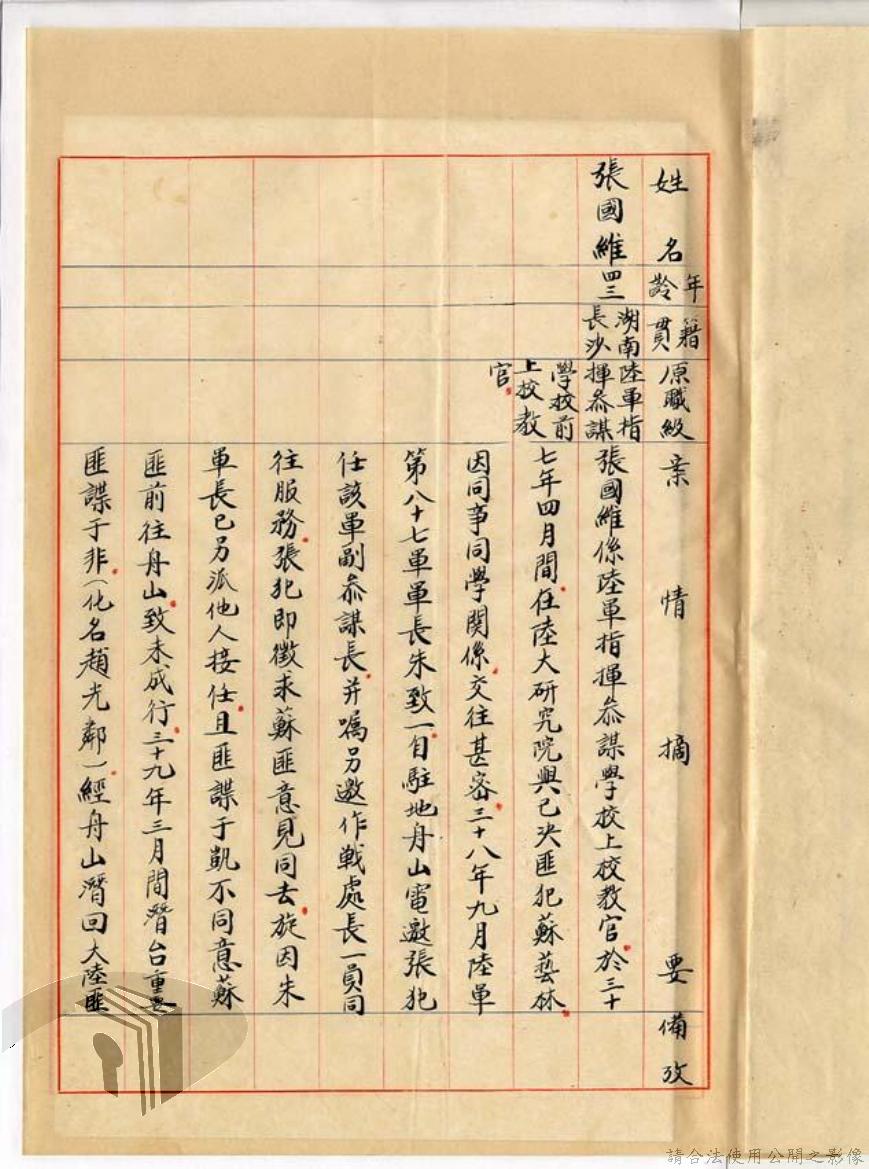 姓名 年齡 籍貫 原職級 案情摘要 備攷
張國維 四三 湖南長沙 陸軍指揮參謀學校前上校教官
張國維係陸軍指揮參謀學校上校教官。於三十
七年四月間。在陸大研究院與已決匪犯蘇藝林。
因同事同學關係。交往甚密。三十八年九月陸軍
第八十七軍軍長朱致一。自駐地舟山電邀張犯
任該軍副參謀長。并囑另邀作戰處長一員同
往服務。張犯即徵求蘇匪意見同去。旋因朱
軍長已另派他人接任。且匪諜于凱不同意蘇
匪前往舟山。致未成行。三十九年三月間潛台重要
匪諜于非。（化名趙光鄰）。經舟山潛回大陸匪
請合法使用公開之影像